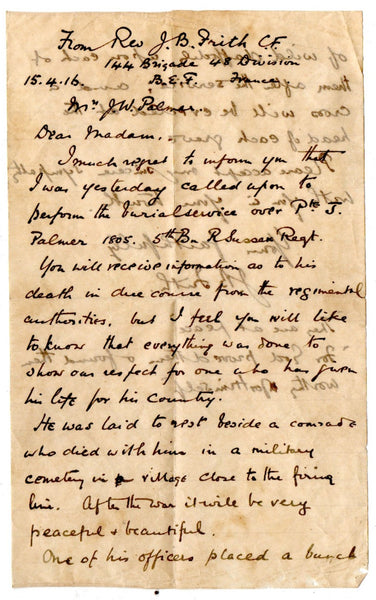 From Rev J. B. Frith C.F.
144 Brigade 48 Division
15.4.16 B.E.F. France
Mrs J. W. Palmer.
Dear Madam.
I much regret to inform you that
I was yesterday called upon to
perform the burial service over Pte J.
Palmer 1805. 5th Bn R. Sussex Regt.
You will receive information as to his
death in due course from the regimental
authorities, but I feel you will like
to know that everything was done to
show our respect for one who has given
his life for his country.
He was laid to rest beside a comrade
who died with him in a military
cemetery in village close to the firing
line. After the war it will be very
peaceful & beautiful.
One of his officers placed a bunch